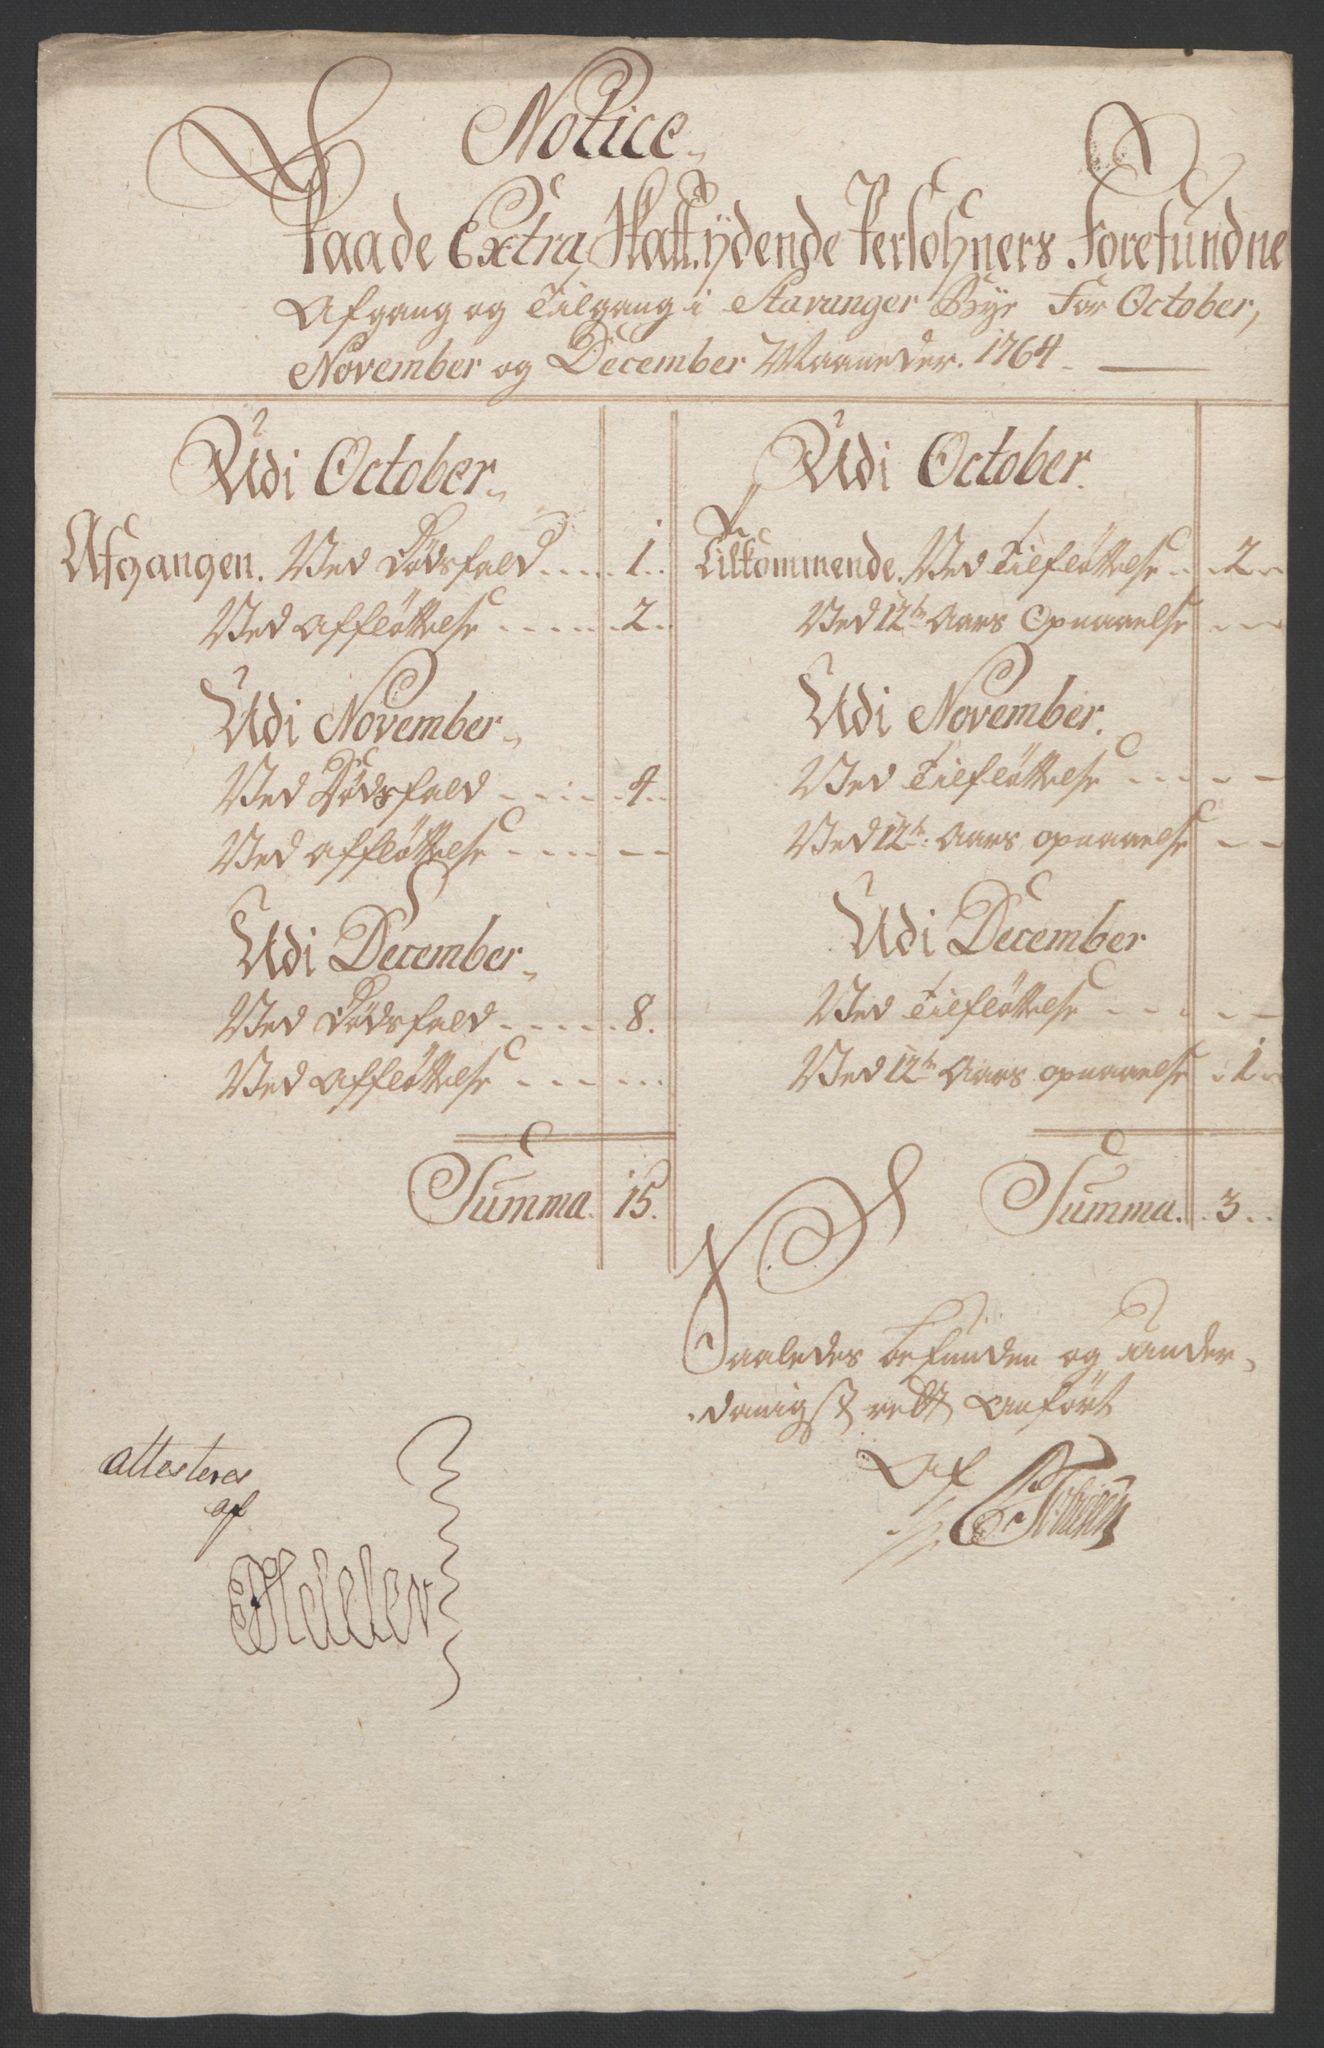 Notice
Paa de Extra Skatt ydende Persohners Forefundne
Afgang og Tilgang i Stavanger Bye for October,
November og December Maaneder. 1764
Udi October
Afgangen. Ved Dødsfald 1
Ved affløttelse 2
Udi November
Ved Dødsfald 4
Ved affløttelse
Udi December
Ved Dødsfald 8.
Ved affløttelse
Summa. 15.
Udi October.
Tilkommende. Ved Tilfløttelse 2
Ved 12te Aars Opnaaelse
Udi November.
Ved Tilfløttelse
Ved 12te Aars opnaaelse
Udi December
Ved Tilfløttelse
Ved 12te Aars opnaaelse 1
Summa. 3
Saaledes befunden og under-
danigst rett anført
Af
attesteres
af